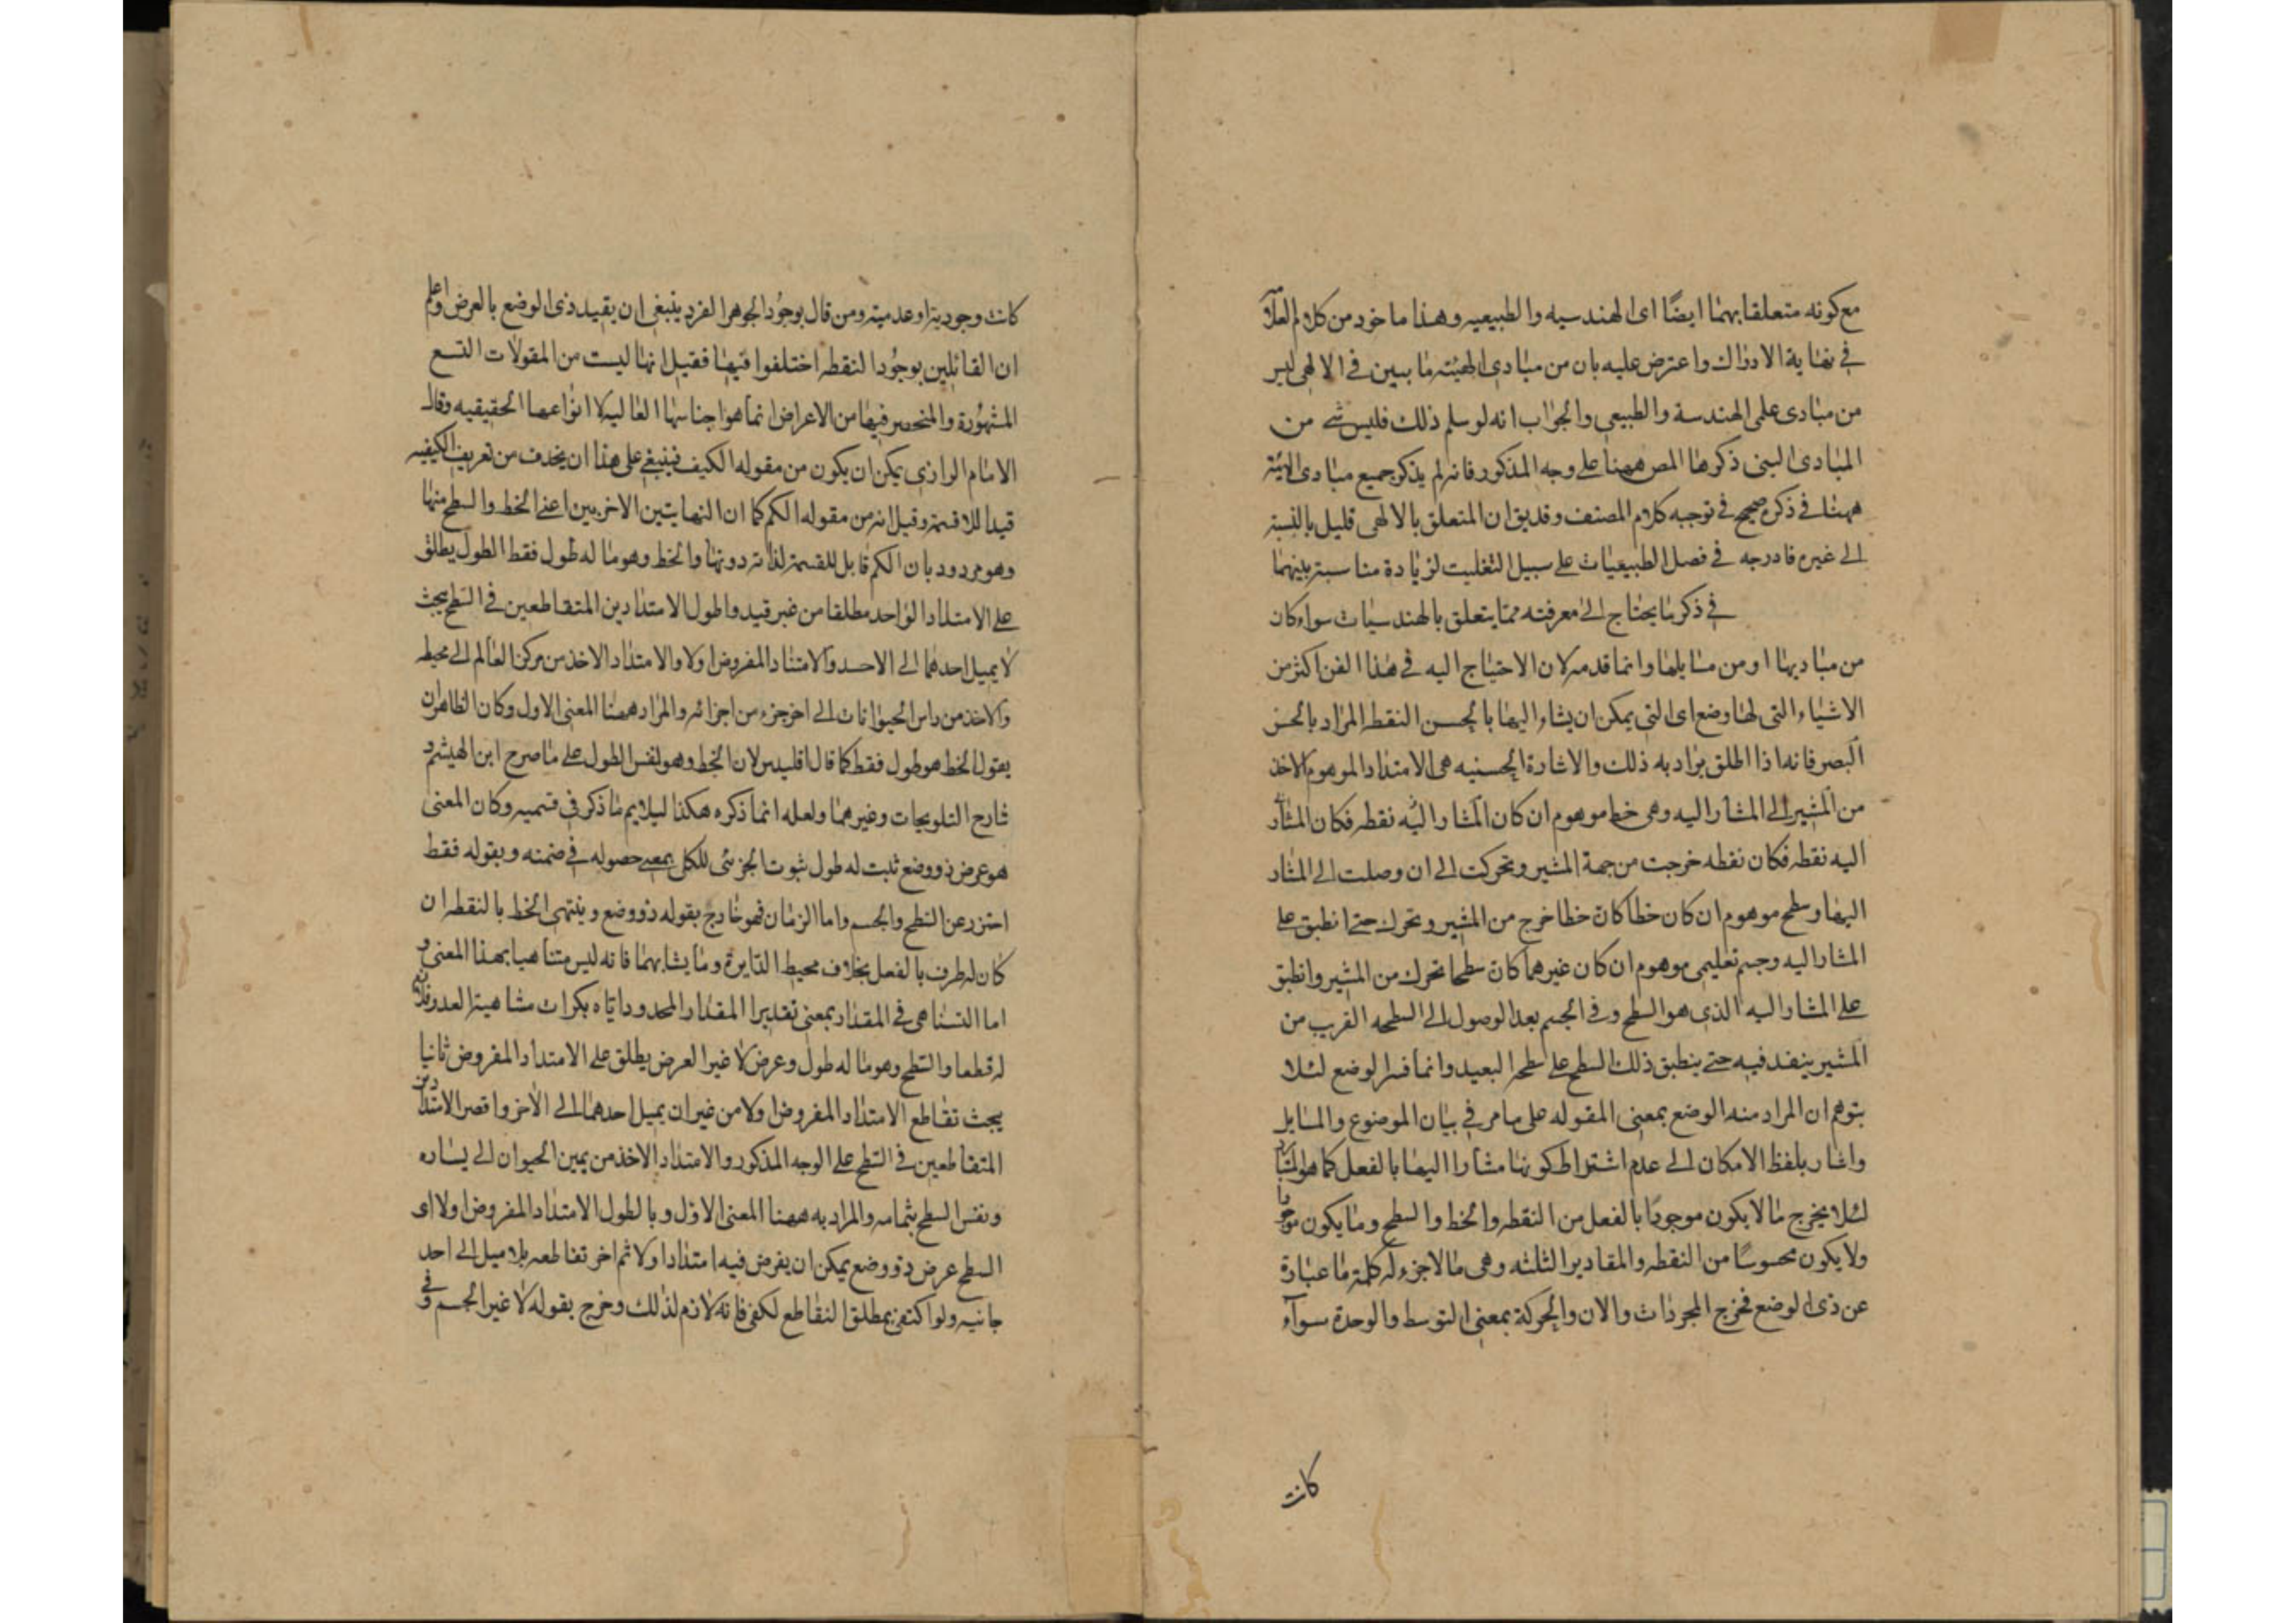 مع كونه متعلقا بهما ايضًا اى الهندسيه والطبيعيه وهذا ماخود من كلام العلآ
فى نهاية الادراك واعترض عليه بان من مبادى الهيئه ما يبين فى الالهى ليس
من مبادى علمى الهندسة والطبيعى والجواب انه لو سلم ذلك فليس شے من
المبادى التى ذكرها المص ههنا على وجه المذكور فانه لم يذكر جميع مبادى الهيئة
ههنا فى ذكره صحيح فى توجيه كلام المصنف وقد يق ان المتعلق بالالهى قليل بالنسبة
الى غيره فادرجه فى فصل الطبيعيات على سبيل التغليب لزيادة مناسبة بينهما
فى ذكر ما يحتاج الى معرفته مما يتعلق بالهندسيات سواء كان
من مباديها او من مسايلها وانما قدمه لان الاحتياج اليه فى هذا الفن اكثر من
الاشياء التى لها وضع اى التى يمكن ان يشاء اليها بالحسن النقطه المراد بالحس
البصر فانه اذا اطلق يراد به ذلك والاشارة الحسنيه هى الامتداد الموهوم الاخذ
من المشير الى المشار اليه وهى خط موهوم ان كان المشار اليه نقطه فكان المشار
اليه نقطه فكان نقطه خرجت من جهة المشير وتحركت الى ان وصلت الى المشار
اليها وسطح موهوم ان كان خطا كان خطا خرج من المشير وتحرك حتى انطبق على
المشار اليه وجسم تعليمى موهوم ان كان غيرهما كان سطحا تحرك من المشير وانطبق
على المشار اليه الذى هو السطح وفى الجسم بعد الوصول الى السطحه القريب من
المشير ينفد فيه حتى ينطبق ذلك السطح على سطحه البعيد وانما فسر الوضع لئلا
يتوهم ان المراد منه الوضع بمعنى المقوله على ما مر فى بيان الموضوع والمسايل
واشار بلفظ الامكان الى عدم اشتراط كونها مشارا اليها بالفعل كما هو المتبادر
لئلا يخرج مالا يكون موجودًا بالفعل من النقطه والخط والسطح وما يكون موجودا
ولا يكون محسوسًا من النقطه والمقادير الثلثه وهى مالاجزء له كلمة ما عبارة
عن ذى الوضع فخرج المجردات والان والحركة بمعنى التوسط والوحدة سوآء
كانت
كانت وجودية او عدمية ومن قال بوجُود الجوهر الفرد ينبغى ان يقيد ذى الوضع بالعرض واعلم
ان القائلين بوجُود النقطه اختلفوا فيها فقيل انها ليست من المقولات التسع
المشهُورة والمنحصر فيها من الاعراض انما هو اجناسها العاليه لا انواعها الحقيقيه وقال
الامام الرازى يمكن ان يكون من مقوله الكيف فينبغى على هذا ان يحذف من تعريف الكيفيه
قيد اللاقسمة وقيل انه من مقوله الكم كما ان النهايتين الاخريين اعنى الخط والسطح منها
وهو مردود بان الكم قابل للقسمة لذاته دونها والخط وهو ما له طول فقط الطول يطلق
على الامتداد الواحد مطلقا من غير قيد واطول الامتدادين المتقاطعين فى السطح بحيث
لا يميل احدهما الى الاحد والامتداد المفروض اولا والامتداد الاخذ من مركز العالم الى محيطه
والاخذ من راس الحيوانات الى اخر جزء من اجزائه والمراد ههنا المعنى الاول وكان الظاهر ان
يقول الخط هو طول فقط كما قال اقليدس لان الخط وهو نفس الطول على ما صرح ابن الهيثم و
شارح التلويحات وغيرهما ولعله انما ذكره هكذا ليلايم ما ذكر فى قسميه وكان المعنى
هو عرض ذو وضع ثبت له طول ثبوت الجزئى للكل بمعنى حصوله فى ضمنه وبقوله فقط
احترز عن السطح والجسم واما الزمان فهو خارج بقوله ذو وضع وينتهى الخط بالنقطه ان
كان له طرف بالفعل بخلاف محيط الدايرة وما يشابهما فانه ليس متناهيا بهذا المعنى و
اما التناهى فى المقدار بمعنى تقدير المقدار المحدود اياه بكرات متناهية العدد فلا
له قطعا والسطح وهو ما له طول وعرض لا غير العرض يطلق على الامتداد المفروض ثانيا
بحيث تقاطع الامتداد المفروض اولا من غير ان يميل احدهما الى الاخر واقصر الامتدادين
المتقاطعين فى السطح على الوجه المذكور والامتداد الاخذ من يمين الحيوان الى يساره
ونفس السطح بتمامه والمراد به ههنا المعنى الاول وبالطول الامتداد المفروض اولا اى
السطح عرض ذو وضع يمكن ان يفرض فيه امتدادا ولا ثم اخر تقاطعه بلا ميل الى احد
جانبيه ولو اكتفى بمطلق التقاطع لكفى فانه لازم لذلك وخرج بقوله لا غير الجسم و فى